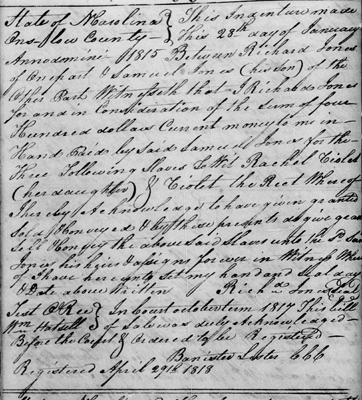 State of N Carolina } This Indenture made
Onslow County } This 28th day of January
Annodomini 1815 Between Richard Jones
of One part & Samuel Jones (his son) of the
Other Part Witnesseth that I Richard Jones
for and in Consideration of the Sum of four
Hundred dollars Current money to me in
Hand Paid by Said Samuel Jones for the
Three Following Slaves to Wit Rachel Violet
(her daughter) & Violet the Rect Whereof
I hereby Acknowledge to have given granted
Sold Conveyed & by these presents do give grant
Sell Convey the above Said Slaves unto the Sd Saml
Jones his heirs & assigns forever in Witness Whereof
I have hereunto Set my hand and Seal day
& Date above Written Richd Jones Seal
Test } In Court october term 1817 This bill
Wm } of Sale was duly Acknowledged
Before the Court & Ordered to be Registered
Banister Lester CCC
Registered April 29th 1818